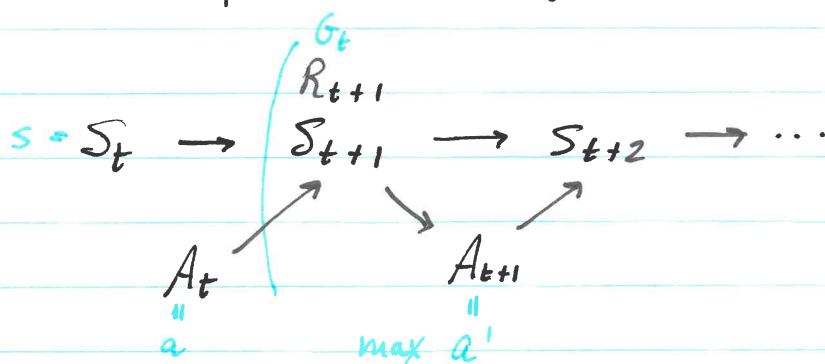 G_t
R_{t+1}
s = S_t → S_{t+1} → S_{t+2} → ...
A_t A_{t+1}
" "
a max a'